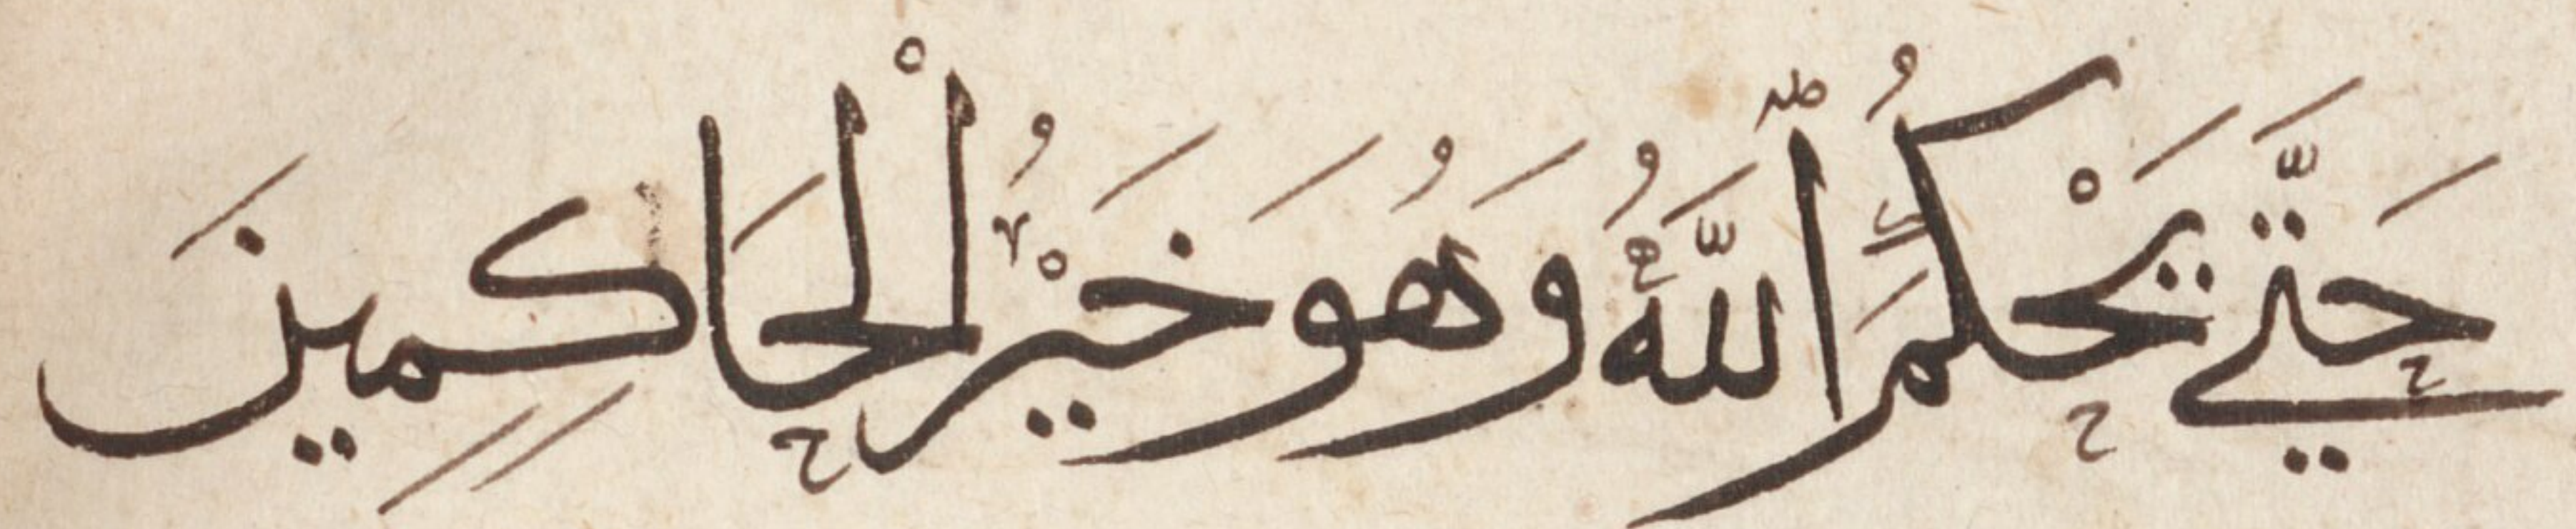 حَتَّي يَحْكُمَ اللَّهُ وَهُوَ خَيْرُ الْحَاكِمِينَ